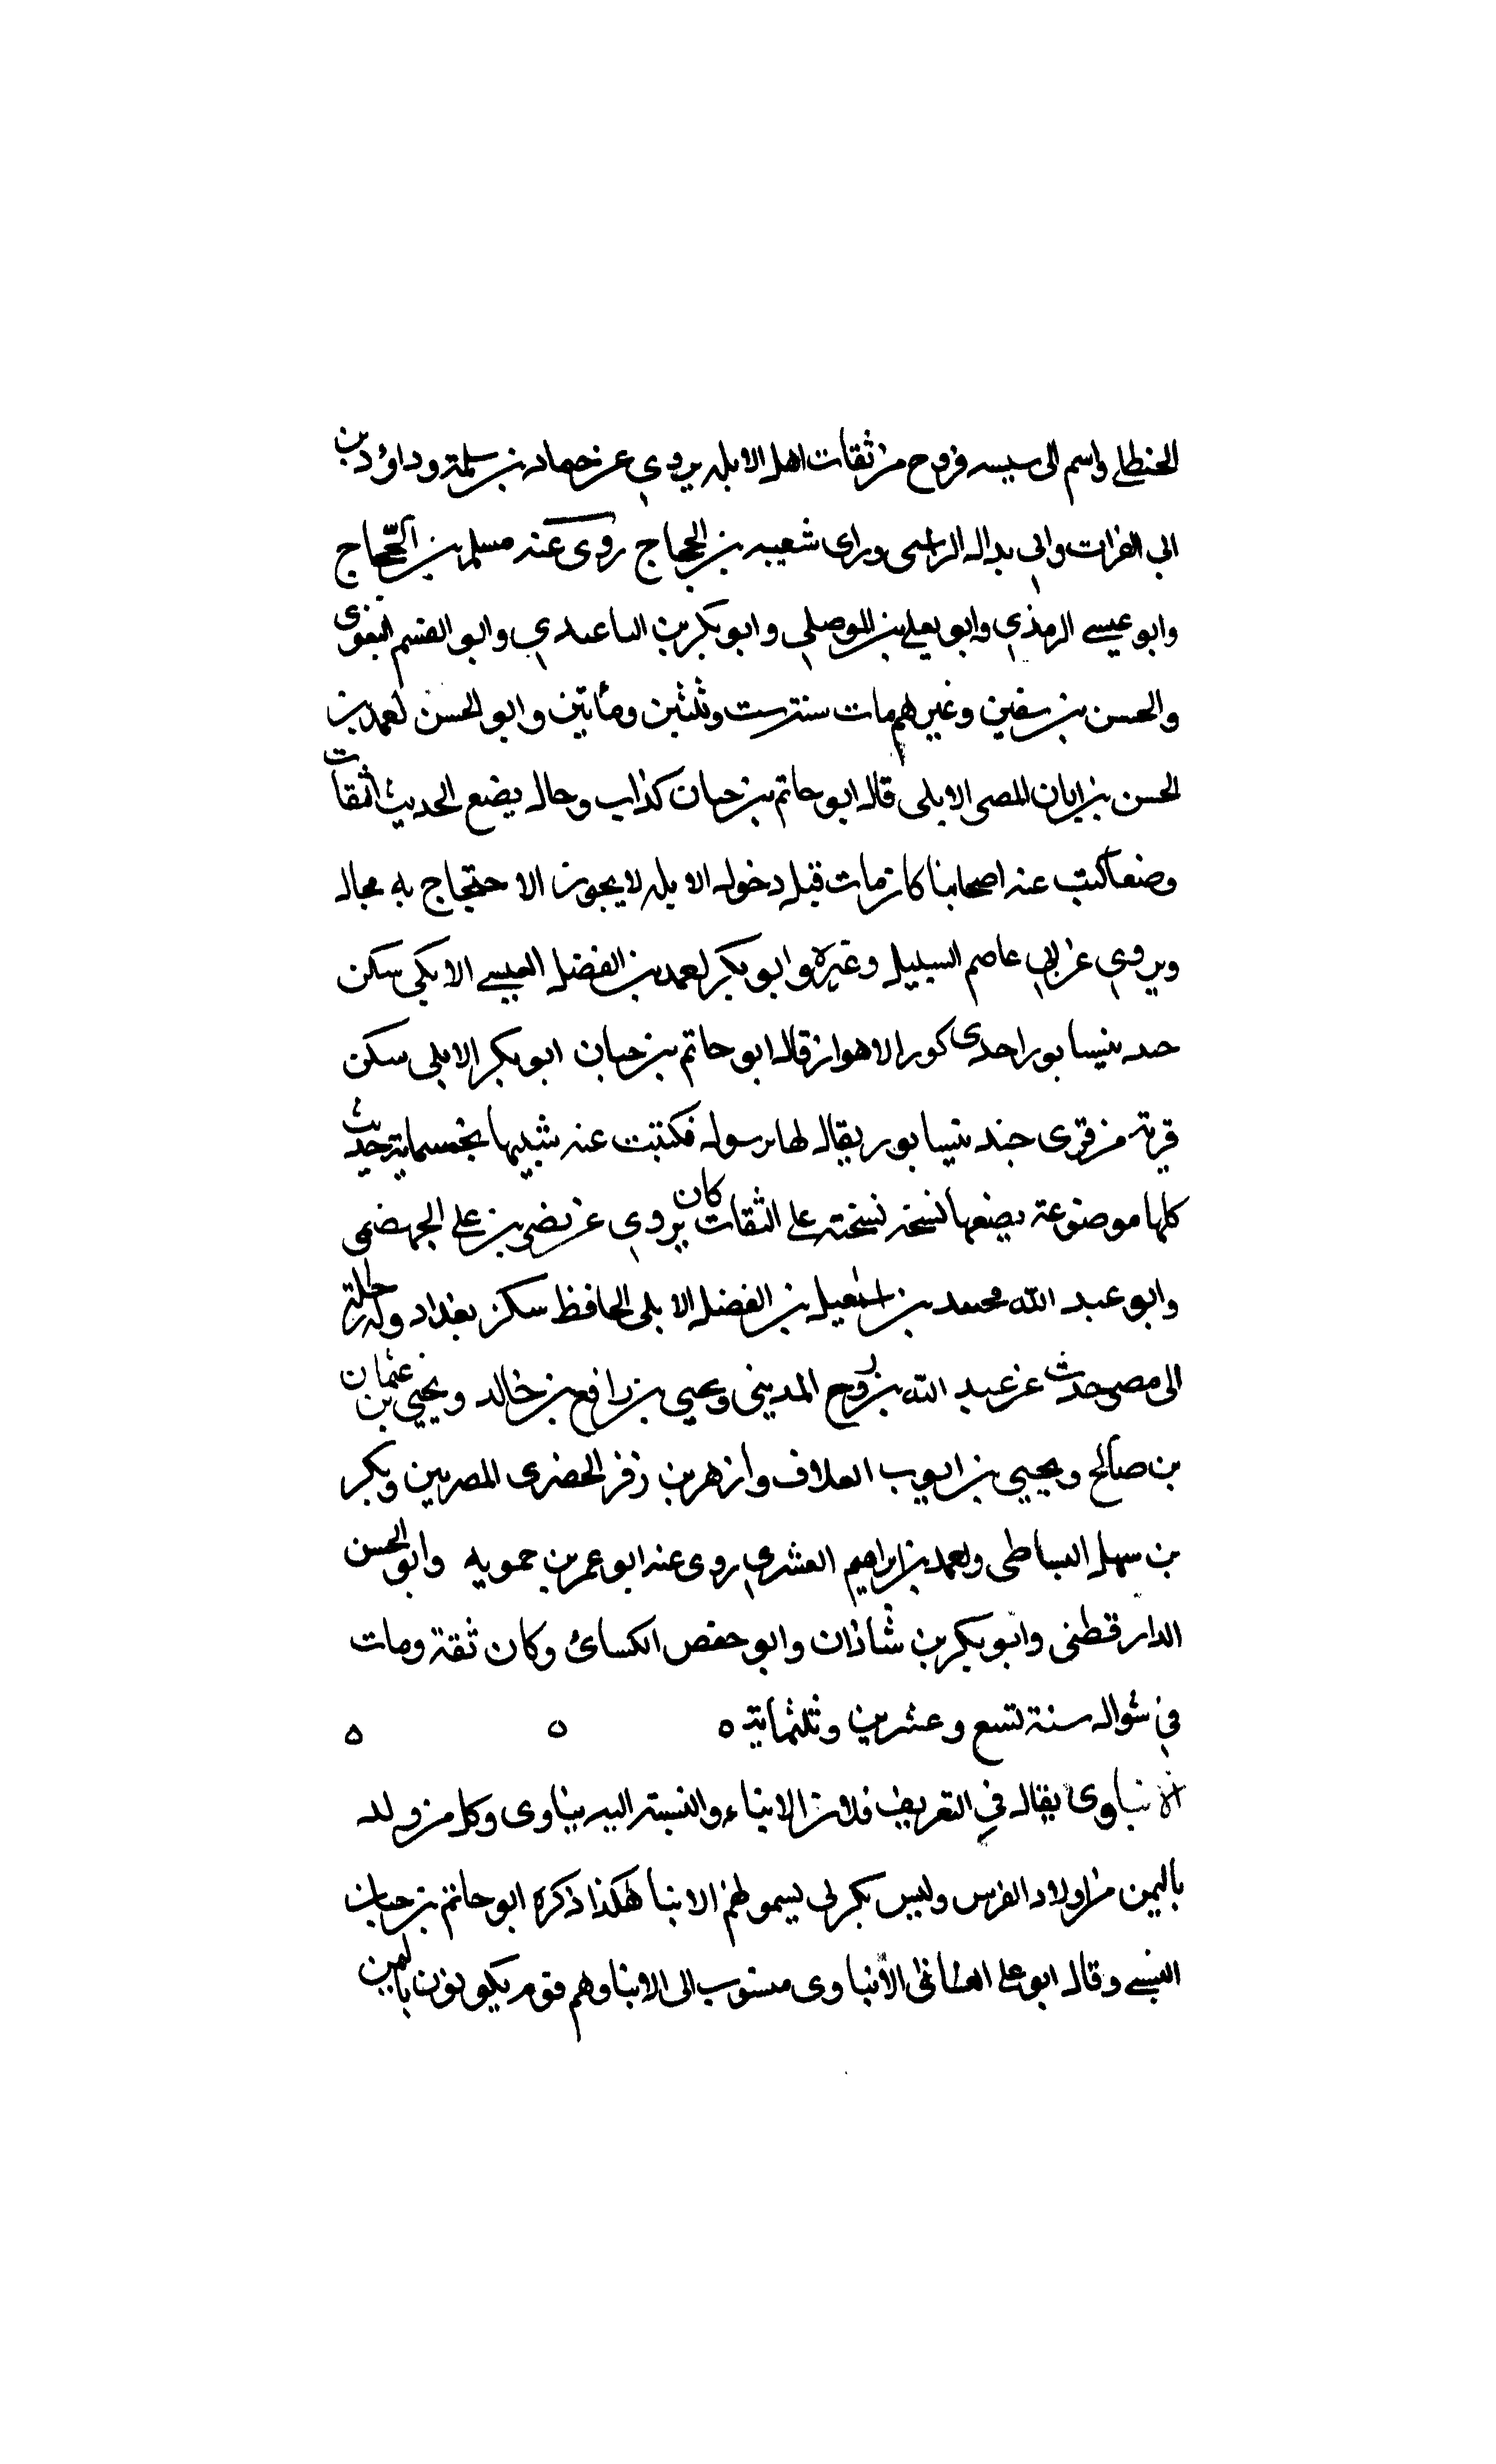 الحنطلى واسم ابى سيبه فروح من ثقات اهل الابله يروي عن حماد بن سلمة وداؤد بن
ابي الفرات وابي بداله الراسى وراى شعيبه بن الحجاج روى عنه مسلم بن الحجاج
وابو عيسى الرمذي وابو يعلى بن الموصلي وابو بكر بن الباعىدي وابو القسم البغوى
والحسن بن سفين وغيرهم مات سنة ست وثلثين ومأتين وابو الحسن محمد بن
الحسن بن ابان المصى الابلى قال ابو حاتم بن حبان كذاب وحال يضع الحديث الثقات
وضعا كتب عنه اصحابنا كان مات قبل دخول الابله لا يجوز الاحتجاج به بحال
ويروي عن ابي عاصم السبيل وغيره وابو بكر محمد بن الفضل العيسى الابكى سكن
حد ىنيسابور احدى كور الاهواز قال ابو حاتم بن حبان ابو بكر الابلى سكن
قرية من قرى جند ىنيسابور يقال لها رسول فكتبت عنه شبيها بخمسماية حديث
كلها موضوعة يضعها نسخة نسخته على الثقات كان يروي عن نضر بن على الجهضمى
وابو عبد الله محمد بن اسمعيل بن الفضل الابلى الحافظ سكن بغداد وله رحلة
الى مصر حدث عن عبد الله بن روح المدينى ويحيى بن رافع بن خالد ويحيى بن عثمان
بن صالح ويحيى بن ايوب العلاف وازهر بن زفر الحضرى المصريين وبكر
بن سهل البساطى ومحمد بن ابراهيم العشري روى عنه ابو عمر بن حمويه وابو الحسن
الدارقطنى وابو بكر بن شاذان وابو حفص الكسائ وكان ثقة ومات
في شوال سنة تسع وعشرين وثلثماية ه ه ه
الانباوى يقال في التعريف فلان الابناء والنسبة اليه بيناوى وكل من ولد
باليمن من اولاد الفرس وليس بكرلى يسمونهم الابنا هكذا ذكره ابو حاتم بن حبان
البستى وقال ابو على الغسانى الأنباوى منسوب الى الابنا وهم قوم يكونون باليمن